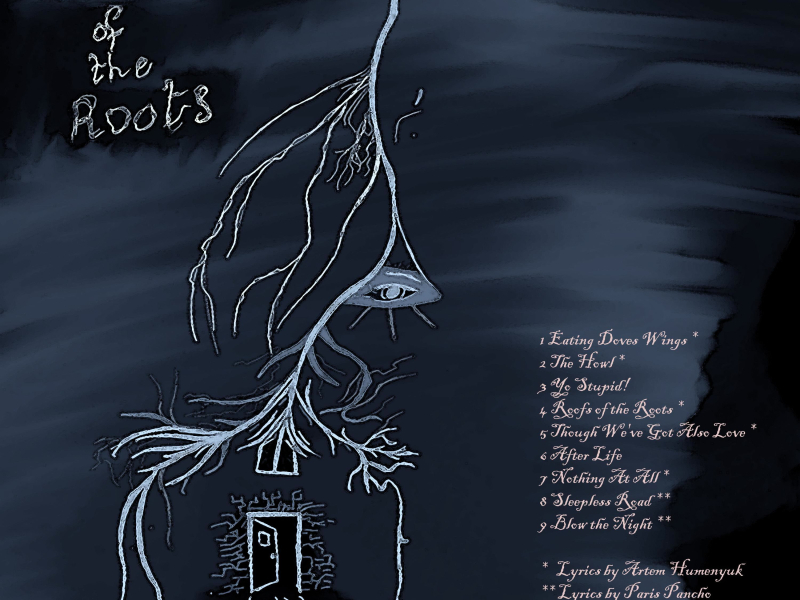 of
the
Roots
1 Eating Doves Wings *
2 The Howl *
3 Yo Stupid!
4 Roofs of the Roots *
5 Though We've Got Also Love *
6 After Life
7 Nothing At All *
8 Sleepless Road **
9 Blow the Night **
* Lyrics by Artem Humenyuk
** Lyrics by Paris Pancho